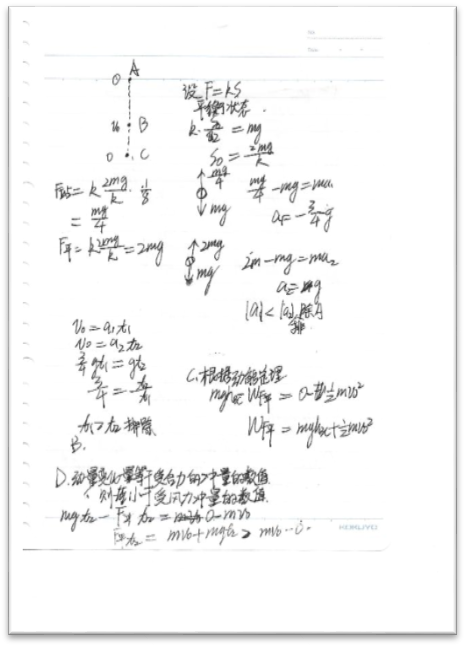 No
Date
A
0
v₀ B
0 C
设F=kS
平衡状态
k·S₀/2=mg
S₀=2mg/k
F站=k 2mg/k·1/8
=mg/4
mg/4
mg
mg/4-mg=ma₁
a₁=-3/4g
F平=k 2mg/k=2mg
2mg
mg
2m-mg=ma₂
a₂=g
|a₁|<|a₂| 除A
v₀=a₁t₁
v₀=a₂t₂
3/4gt₁=gt₂
3/4=t₂/t₁
t₁>t₂排除
B.
C.根据动能定理
-W F平=0-1/2mv₀²
W F平=mgh BC+1/2mv₀²
D.动量变化量等于受合力的冲量的数值
则 小于受风力冲量的数值
mgt₂-F平t₂=0-mv₀
F平t₂=mv₀+mgt₂>mv₀-0.
KOKUYO